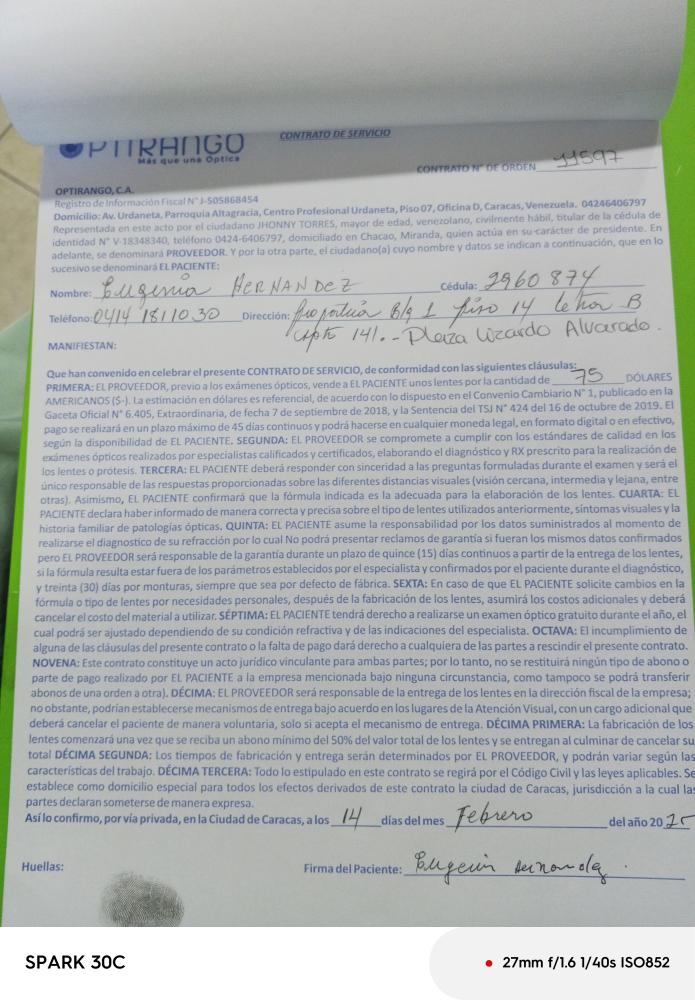 OPTIRANGO
Más que una Optica
CONTRATO DE SERVICIO
CONTRATO N° DE ORDEN 11597
OPTIRANGO, C.A.
Registro de Información Fiscal N° J-505868454
Domicilio: Av. Urdaneta, Parroquia Altagracia, Centro Profesional Urdaneta, Piso 07, Oficina D, Caracas, Venezuela. 04246406797
Representada en este acto por el ciudadano JHONNY TORRES, mayor de edad, venezolano, civilmente hábil, titular de la cédula de
identidad N° V-18348340, teléfono 0424-6406797, domiciliado en Chacao, Miranda, quien actúa en su carácter de presidente. En
adelante, se denominará PROVEEDOR. Y por la otra parte, el ciudadano(a) cuyo nombre y datos se indican a continuación, que en lo
sucesivo se denominará EL PACIENTE:
Nombre: Eugenia HERNANDEZ Cédula: 2960874
Teléfono: 0414 1811030 Dirección: Blq 1 piso 14 letra B
apto 141.- Plaza Lizardo Alvarado.
MANIFIESTAN:
Que han convenido en celebrar el presente CONTRATO DE SERVICIO, de conformidad con las siguientes cláusulas:
PRIMERA: EL PROVEEDOR, previo a los exámenes ópticos, vende a EL PACIENTE unos lentes por la cantidad de 75 DÓLARES
AMERICANOS ($-). La estimación en dólares es referencial, de acuerdo con lo dispuesto en el Convenio Cambiario N° 1, publicado en la
Gaceta Oficial N° 6.405, Extraordinaria, de fecha 7 de septiembre de 2018, y la Sentencia del TSJ N° 424 del 16 de octubre de 2019. El
pago se realizará en un plazo máximo de 45 días continuos y podrá hacerse en cualquier moneda legal, en formato digital o en efectivo,
según la disponibilidad de EL PACIENTE. SEGUNDA: EL PROVEEDOR se compromete a cumplir con los estándares de calidad en los
exámenes ópticos realizados por especialistas calificados y certificados, elaborando el diagnóstico y RX prescrito para la realización de
los lentes o prótesis. TERCERA: EL PACIENTE deberá responder con sinceridad a las preguntas formuladas durante el examen y será el
único responsable de las respuestas proporcionadas sobre las diferentes distancias visuales (visión cercana, intermedia y lejana, entre
otras). Asimismo, EL PACIENTE confirmará que la fórmula indicada es la adecuada para la elaboración de los lentes. CUARTA: EL
PACIENTE declara haber informado de manera correcta y precisa sobre el tipo de lentes utilizados anteriormente, síntomas visuales y la
historia familiar de patologías ópticas. QUINTA: EL PACIENTE asume la responsabilidad por los datos suministrados al momento de
realizarse el diagnostico de su refracción por lo cual No podrá presentar reclamos de garantía si fueran los mismos datos confirmados
pero EL PROVEEDOR será responsable de la garantía durante un plazo de quince (15) días continuos a partir de la entrega de los lentes,
si la fórmula resulta estar fuera de los parámetros establecidos por el especialista y confirmados por el paciente durante el diagnóstico,
y treinta (30) días por monturas, siempre que sea por defecto de fábrica. SEXTA: En caso de que EL PACIENTE solicite cambios en la
fórmula o tipo de lentes por necesidades personales, después de la fabricación de los lentes, asumirá los costos adicionales y deberá
cancelar el costo del material a utilizar. SÉPTIMA: EL PACIENTE tendrá derecho a realizarse un examen óptico gratuito durante el año, el
cual podrá ser ajustado dependiendo de su condición refractiva y de las indicaciones del especialista. OCTAVA: El incumplimiento de
alguna de las cláusulas del presente contrato o la falta de pago dará derecho a cualquiera de las partes a rescindir el presente contrato.
NOVENA: Este contrato constituye un acto jurídico vinculante para ambas partes; por lo tanto, no se restituirá ningún tipo de abono o
parte de pago realizado por EL PACIENTE a la empresa mencionada bajo ninguna circunstancia, como tampoco se podrá transferir
abonos de una orden a otra). DÉCIMA: EL PROVEEDOR será responsable de la entrega de los lentes en la dirección fiscal de la empresa;
no obstante, podrían establecerse mecanismos de entrega bajo acuerdo en los lugares de la Atención Visual, con un cargo adicional que
deberá cancelar el paciente de manera voluntaria, solo si acepta el mecanismo de entrega. DÉCIMA PRIMERA: La fabricación de los
lentes comenzará una vez que se reciba un abono mínimo del 50% del valor total de los lentes y se entregan al culminar de cancelar su
total DÉCIMA SEGUNDA: Los tiempos de fabricación y entrega serán determinados por EL PROVEEDOR, y podrán variar según las
características del trabajo. DÉCIMA TERCERA: Todo lo estipulado en este contrato se regirá por el Código Civil y las leyes aplicables. Se
establece como domicilio especial para todos los efectos derivados de este contrato la ciudad de Caracas, jurisdicción a la cual las
partes declaran someterse de manera expresa.
Así lo confirmo, por vía privada, en la Ciudad de Caracas, a los 14 días del mes Febrero del año 2025
Huellas:
Firma del Paciente: Eugenia Hernandez.
SPARK 30C
27mm f/1.6 1/40s ISO852